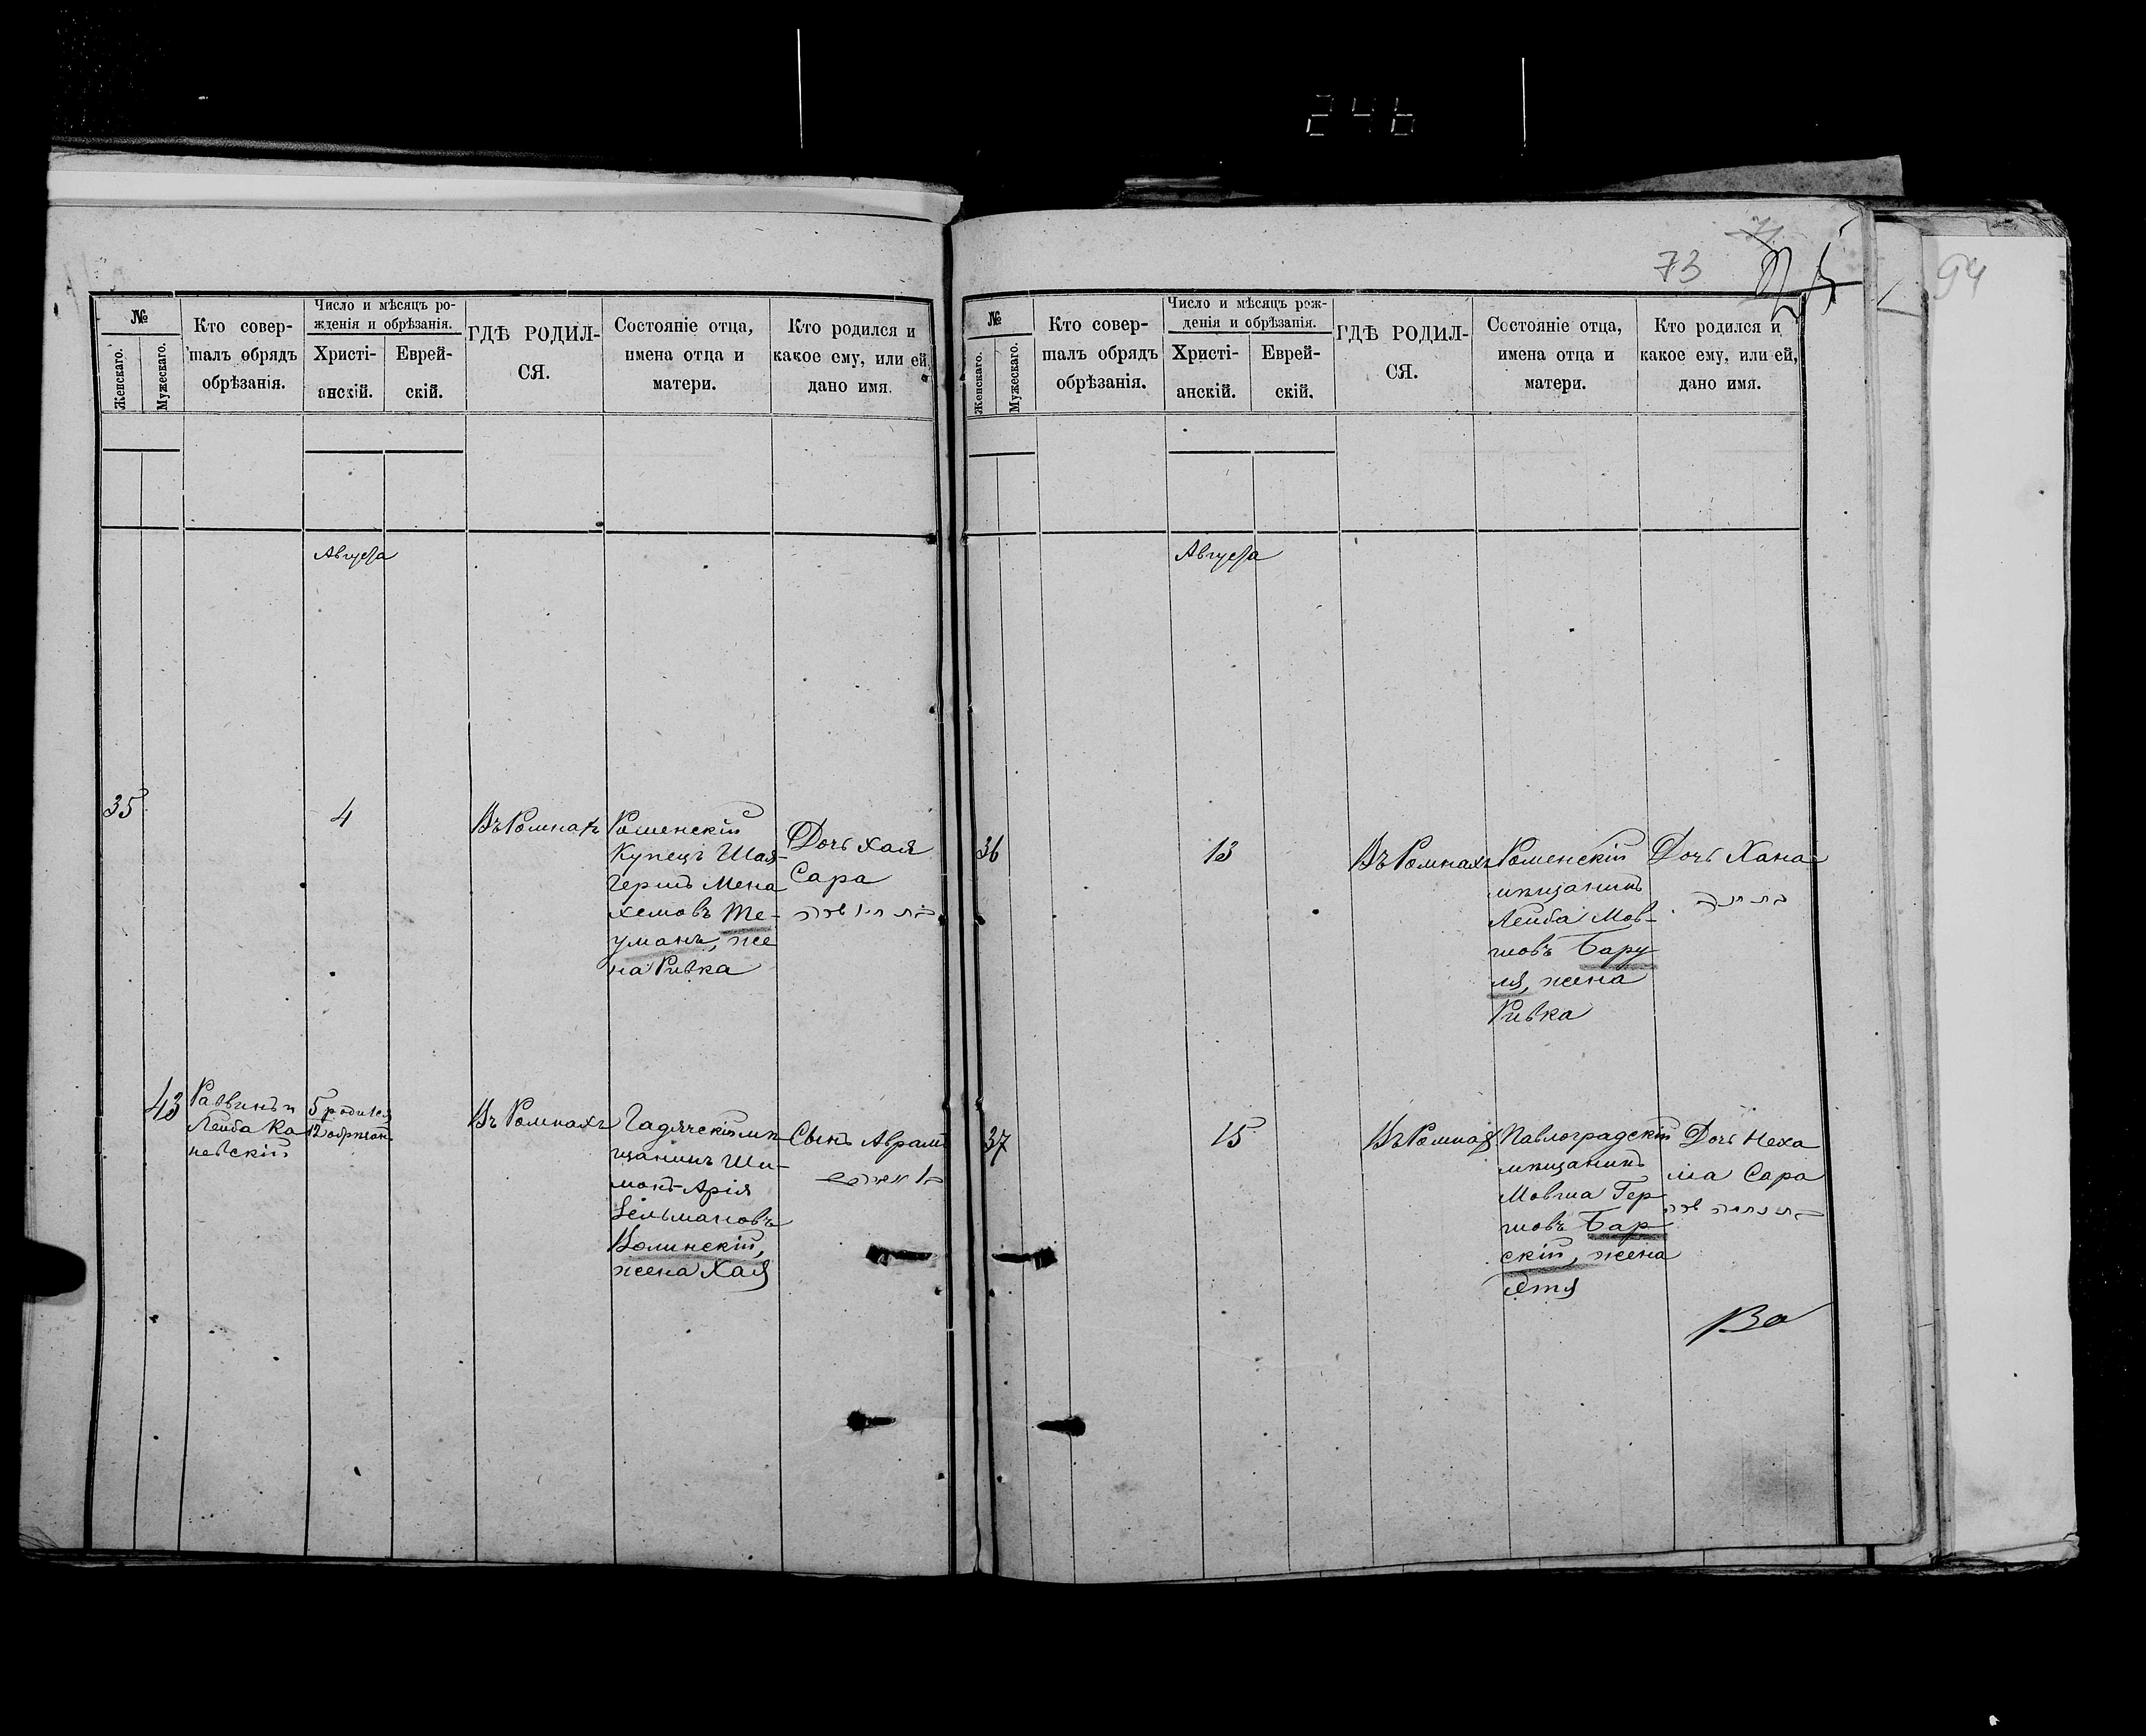 246
№
Женскаго.
Мужескаго.
Кто совер-
шалъ обрядъ
обрѣзанія.
Число и мѣсяцъ ро-
жденія и обрѣзанія.
Христі-
анскій.
Еврей-
скій.
ГДѢ РОДИЛ-
СЯ.
Состояніе отца,
имена отца и
матери.
Кто родился и
какое ему, или ей,
дано имя.
Августа
35
4
Въ Ромнахъ
Роменскій
Купецъ Шая-
Гершъ Мена
хемовъ Те-
уманъ, же
на Ривка
Дочь Хая
Сара
43
Раввинъ и
Лейба Ка
невскій
5 родился
12 обрѣзанъ
Въ Ромнахъ
Гадячскій мѣ
щанинъ Ши-
монъ-Арія
Зельмановъ
Волинскій,
жена Хая
Сынъ Аврамъ
73
94
№
Женскаго.
Мужескаго.
Кто совер-
шалъ обрядъ
обрѣзанія.
Число и мѣсяцъ рож-
денія и обрѣзанія.
Христі-
анскій.
Еврей-
скій.
ГДѢ РОДИЛ-
СЯ.
Состояніе отца,
имена отца и
матери.
Кто родился и
какое ему, или ей,
дано имя.
Августа
36
13
Въ Ромнахъ
Роменскій
мѣщанинъ
Лейба Мов-
шовъ Бару
ля, жена
Ривка
Дочь Хана
37
15
Въ Ромнах
Павлоградскій
мѣщанинъ
Мовша Гер
шовъ Бар
скій, жена
Этя
Дочь Неха
ма Сара